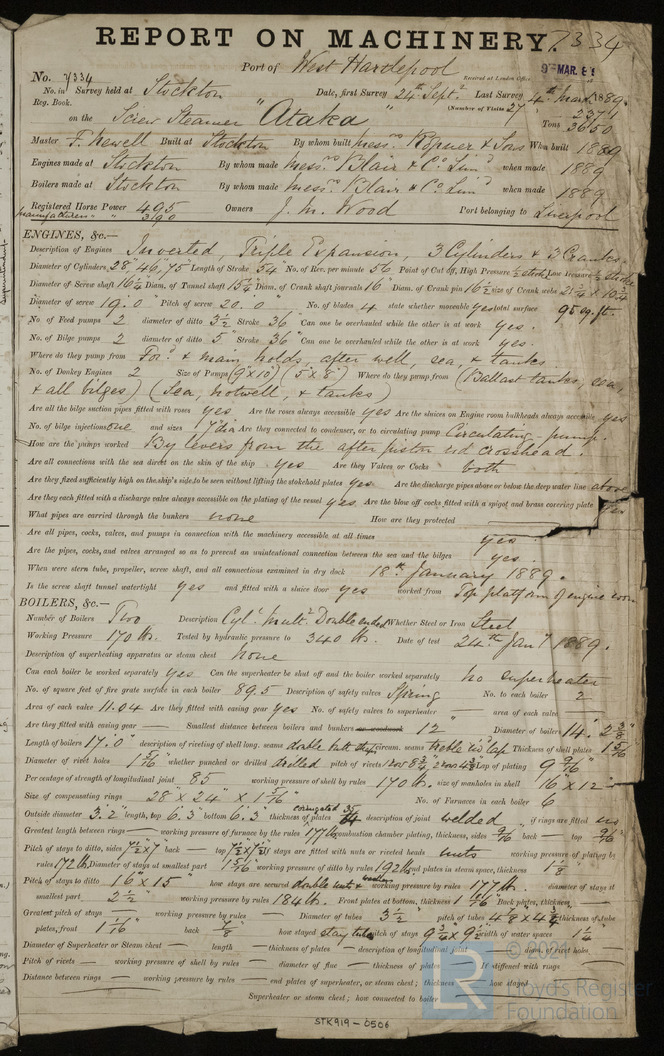 REPORT ON MACHINERY. 7334
Port of West Hartlepool
Received at London Office
No. 7334
No. in Survey held at Stockton Date, first Survey 24th Sept. Last Survey 4th Mar 1889
Reg. Book. (Number of Visits 27
on the Screw Steamer "Ataka" Tons 2371 3650
Master F. Newell Built at Stockton By whom built Messrs Ropner & Son When built 1889
Engines made at Stockton By whom made Messrs Blair & Co Limd when made 1889
Boilers made at Stockton By whom made Messrs Blair & Co Limd when made 1889
Registered Horse Power 495 Owners J. M. Wood Port belonging to Liverpool
manufacturers " " 390
ENGINES, &c.—
Description of Engines Inverted, Triple Expansion, 3 Cylinders & 3 Cranks
Diameter of Cylinders 28", 46", 75" Length of Stroke 54" No. of Rev. per minute 56 Point of Cut off, High Pressure ½ stroke Low Pressure ½ stroke
Diameter of Screw shaft 16¼ Diam. of Tunnel shaft 15½ Diam. of Crank shaft journals 16" Diam. of Crank pin 16½ size of Crank webs 21¼ x 10¾
Diameter of screw 19.0" Pitch of screw 20.0" No. of blades 4 state whether moveable yes total surface 95 sq. ft.
No. of Feed pumps 2 diameter of ditto 3½ Stroke 36" Can one be overhauled while the other is at work yes.
No. of Bilge pumps 2 diameter of ditto 5" Stroke 36" Can one be overhauled while the other is at work yes.
Where do they pump from Ford & main holds, after well, sea, & tanks
No. of Donkey Engines 2 Size of Pumps (9"x10") (5"x8") Where do they pump from (Ballast tanks, sea,
& all bilges) (Sea, hotwell, & tanks)
Are all the bilge suction pipes fitted with roses yes Are the roses always accessible yes Are the sluices on Engine room bulkheads always accessible yes
No. of bilge injections one and sizes 7" dia Are they connected to condenser, or to circulating pump Circulating pump.
How are the pumps worked By levers from the after piston rod crosshead.
Are all connections with the sea direct on the skin of the ship yes Are they Valves or Cocks both
Are they fixed sufficiently high on the ship's side to be seen without lifting the stokehold plates yes Are the discharge pipes above or below the deep water line above
Are they each fitted with a discharge valve always accessible on the plating of the vessel yes Are the blow off cocks fitted with a spigot and brass covering plate yes
What pipes are carried through the bunkers none How are they protected
Are all pipes, cocks, valves, and pumps in connection with the machinery accessible at all times yes
Are the pipes, cocks, and valves arranged so as to prevent an unintentional connection between the sea and the bilges yes.
When were stern tube, propeller, screw shaft, and all connections examined in dry dock 18th January 1889.
Is the screw shaft tunnel watertight yes and fitted with a sluice door yes worked from Top platform of engine room
BOILERS, &c.—
Number of Boilers Two Description Cyl. Mult. Double ended Whether Steel or Iron Steel
Working Pressure 170 lbs. Tested by hydraulic pressure to 340 lbs. Date of test 24th Jany 1889.
Description of superheating apparatus or steam chest None
Can each boiler be worked separately yes Can the superheater be shut off and the boiler worked separately no superheater
No. of square feet of fire grate surface in each boiler 89.5 Description of safety valves Spring No. to each boiler 2
Area of each valve 11.04 Are they fitted with easing gear yes No. of safety valves to superheater — area of each valve —
Are they fitted with easing gear — Smallest distance between boilers and bunkers or woodwork 12" Diameter of boilers 14' 2⅜"
Length of boilers 17'.0" description of riveting of shell long. seams double butt strap circum. seams treble riv. lap. Thickness of shell plates 1 5/16
Diameter of rivet holes 1 5/16" whether punched or drilled drilled pitch of rivets Lap of plating 9 9/16"
Per centage of strength of longitudinal joint 85 working pressure of shell by rules 170 lbs. size of manholes in shell 16" x 12"
Size of compensating rings 28" x 24" x 1 5/16" No. of Furnaces in each boiler 6
Outside diameter 3'.2" length, top 6'.3" bottom 6'.3" thickness of plates corrugated description of joint welded if rings are fitted no
Greatest length between rings — working pressure of furnace by the rules 177 lbs combustion chamber plating, thickness, sides 9/16 back — top 9/16"
Pitch of stays to ditto sides 7½ x 7 back — top 7½ x 7 If stays are fitted with nuts or riveted heads nuts working pressure of plating by
rules 172 lbs Diameter of stays at smallest part 1 5/16" working pressure of ditto by rules 192 lbs end plates in steam space, thickness 1⅛"
Pitch of stays to ditto 16" x 15" how stays are secured double nuts & washers working pressure by rules 177 lbs. diameter of stays at
smallest part 2½" working pressure by rules 184 lbs. Front plates at bottom, thickness 1 1/16" Back plates, thickness —
Greatest pitch of stays — working pressure by rules — Diameter of tubes 3½" pitch of tubes 4⅝ x 4¾ thickness of tube
plates, front 1 1/16" back ⅞" how stayed stay tubes pitch of stays 9¾ x 9½ width of water spaces 1¼"
Diameter of Superheater or Steam chest — length — thickness of plates — description of longitudinal joint — diam. of rivet holes —
Pitch of rivets — working pressure of shell by rules — diameter of flue — thickness of plates — If stiffened with rings —
Distance between rings — working pressure by rules — end plates of superheater, or steam chest; thickness — how stayed —
Superheater or steam chest; how connected to boiler
STK919-0506
Lloyd's Register
Foundation
LR